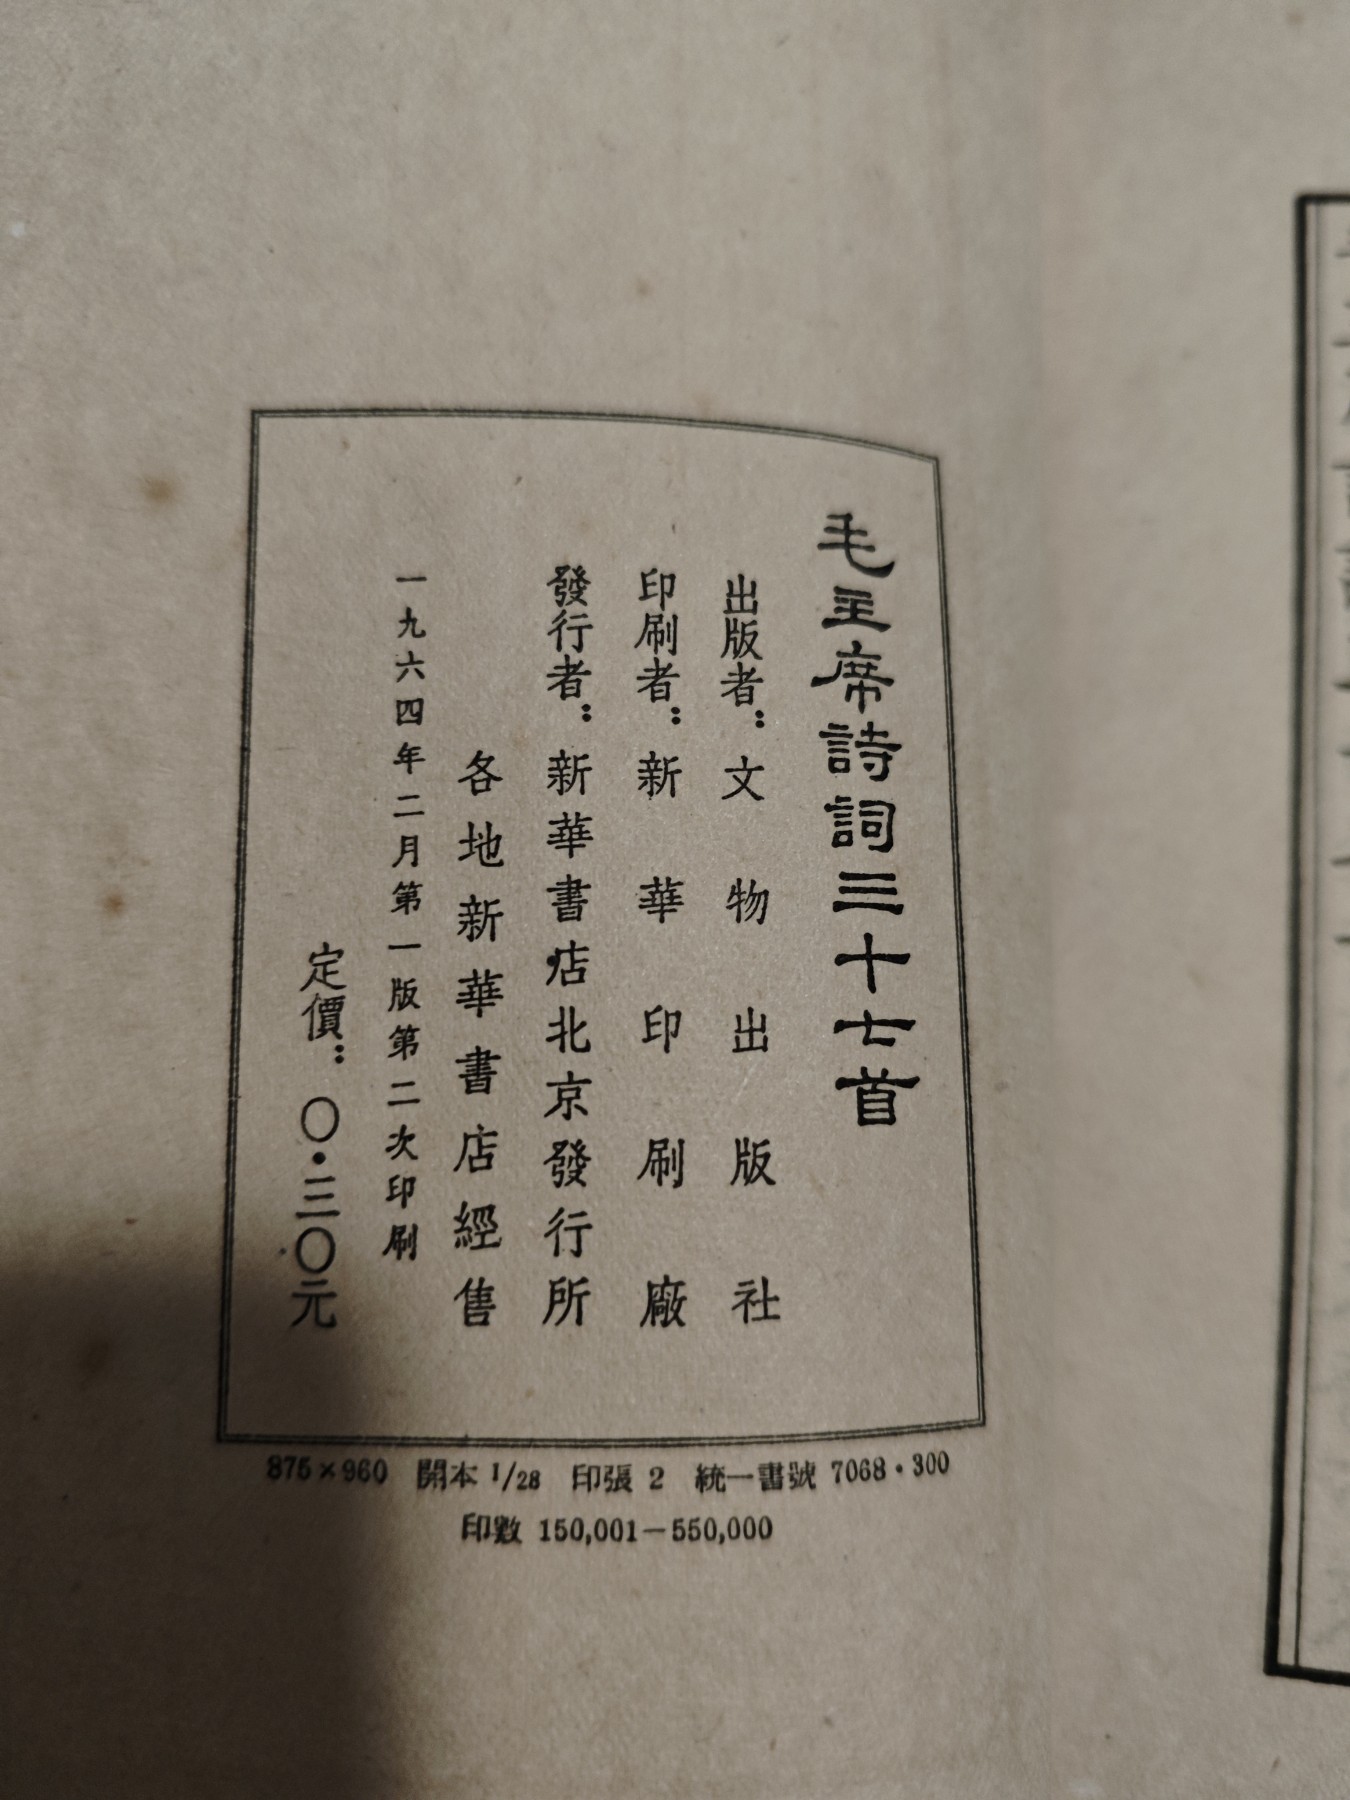 毛主席詩詞三十七首
出版者：文物出版社
印刷者：新華印刷廠
發行者：新華書店北京發行所
各地新華書店經售
一九六四年二月第一版第二次印刷
定價：〇·三〇元
875×960 開本 1/28 印張 2 統一書號 7068·300
印數 150,001—550,000